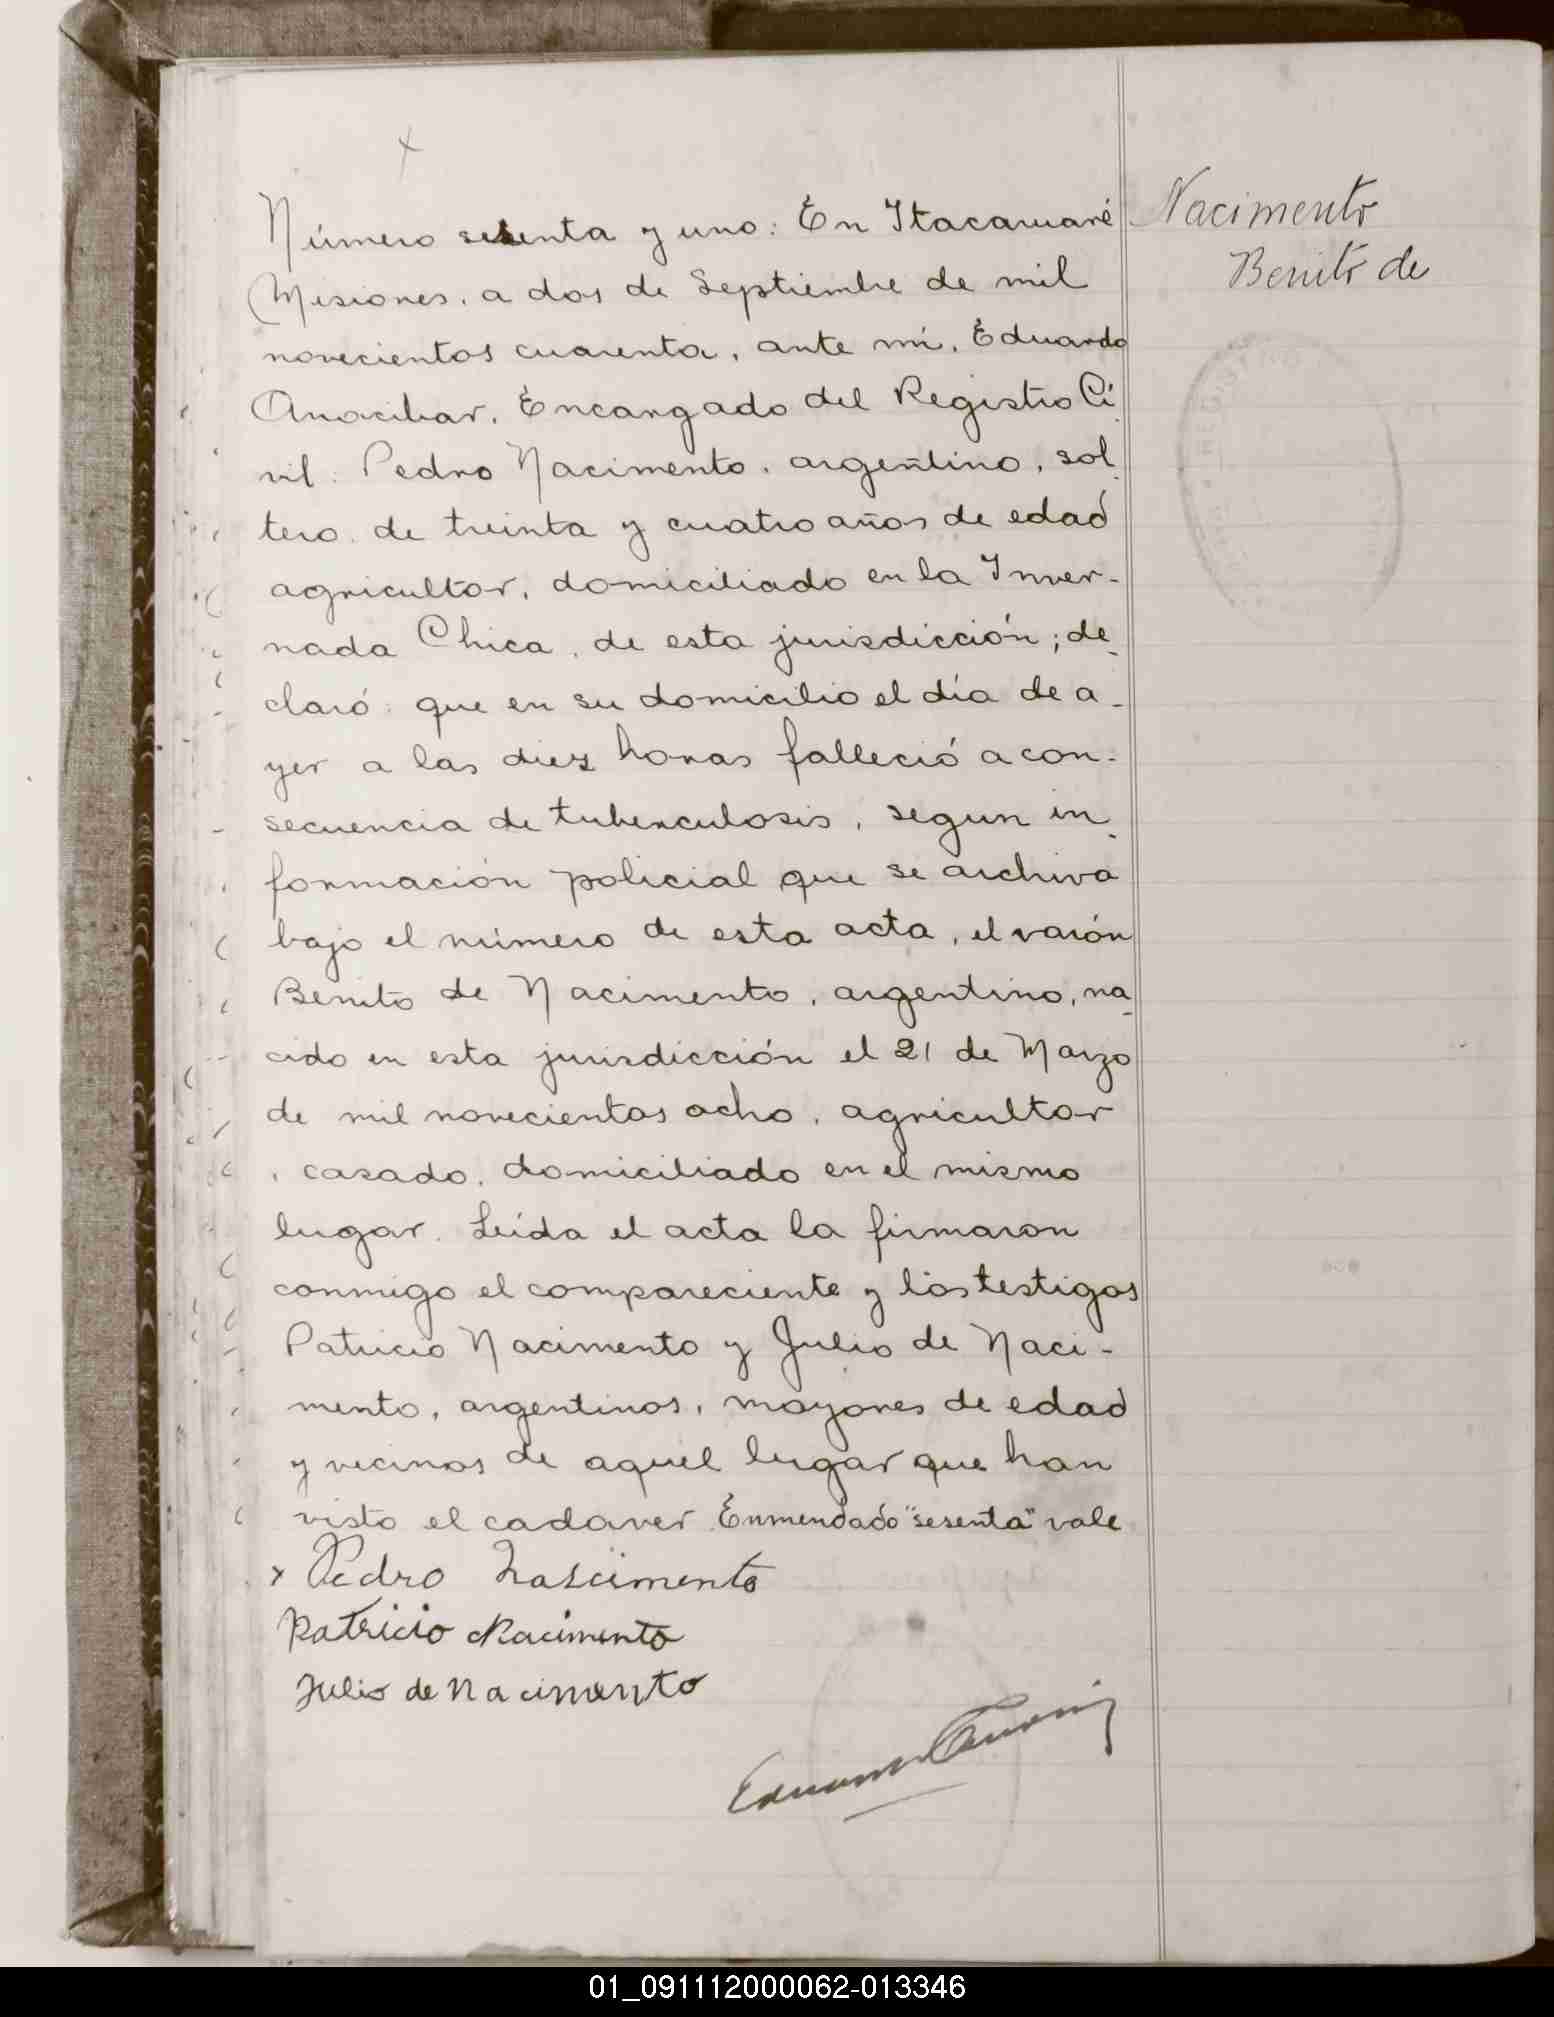 Número sesenta y uno: En Itacaruaré
Misiones, a dos de Septiembre de mil
novecientos cuarenta, ante mi, Eduardo
Anacibar, Encargado del Registro Ci
vil: Pedro Nacimento, argentino, sol
tero, de treinta y cuatro años de edad
agricultor, domiciliado en la Inver-
nada Chica, de esta jurisdicción; de
claró: que en su domicilio el día de a-
yer a las diez horas falleció a con-
secuencia de tuberculosis, segun in
formación policial que se archiva
bajo el número de esta acta, el varón
Benito de Nacimento, argentino, na
cido en esta jurisdicción el 21 de Marzo
de mil novecientos ocho, agricultor
, casado, domiciliado en el mismo
lugar. Leída el acta la firmaron
conmigo el compareciente y los testigos
Patricio Nacimento y Julio de Naci-
mento, argentinos, mayores de edad
y vecinos de aquel lugar que han
visto el cadaver. Enmendado "sesenta" vale
x Pedro Nascimento
Patricio Nacimento
Julio de Nacimento
Nacimento
Benito de
REGISTRO
01_091112000062-013346